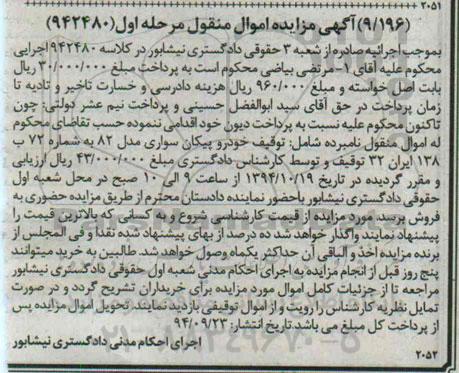 ۲۰۵۱
(۹/۱۹۶) آگهی مزایده اموال منقول مرحله اول (۹۴۲۴۸۰)
بموجب اجرائیه صادره از شعبه ۳ حقوقی دادگستری نیشابور در کلاسه ۹۴۲۴۸۰ اجرایی
محکوم علیه آقای ۱- مرتضی بیاضی محکوم است به پرداخت مبلغ ۳۰/۰۰۰/۰۰۰ ریال
بابت اصل خواسته و مبلغ ۹۶۰/۰۰۰ ریال هزینه دادرسی و خسارت تاخیر و تادیه تا
زمان پرداخت در حق آقای سید ابوالفضل حسینی و پرداخت نیم عشر دولتی: چون
تاکنون محکوم علیه نسبت به پرداخت دیون خود اقدامی ننموده حسب تقاضای محکوم
له اموال منقول نامبرده شامل: توقیف خودرو پیکان سواری مدل ۸۲ به شماره ۷۲ ب
۱۳۸ ایران ۳۲ توقیف و توسط کارشناس دادگستری مبلغ ۴۳/۰۰۰/۰۰۰ ریال ارزیابی
و مقرر گردیده در تاریخ ۱۳۹۴/۱۰/۱۹ از ساعت ۹ الی ۱۰ صبح در محل شعبه اول
حقوقی دادگستری نیشابور باحضور نماینده دادستان محترم از طریق مزایده حضوری به
فروش برسد. مورد مزایده از قیمت کارشناسی شروع و به کسانی که بالاترین قیمت را
پیشنهاد نمایند واگذار خواهد شد ده درصد از بهای پیشنهاد شده نقدا و فی المجلس از
برنده مزایده اخذ و الباقی آن حداکثر یکماه وصول خواهد شد. طالبین به خرید میتوانند
پنج روز قبل از انجام مزایده به اجرای احکام مدنی شعبه اول حقوقی دادگستری نیشابور
مراجعه تا از جزئیات کامل اموال مورد مزایده برای خریداران تشریح گردد و در صورت
تمایل نظریه کارشناس را رویت و از اموال توقیفی بازدید نمایند. تحویل اموال مزایده پس
از پرداخت کل مبلغ می باشد. تاریخ انتشار: ۹۴/۰۹/۲۳
اجرای احکام مدنی دادگستری نیشابور
۲۰۵۲